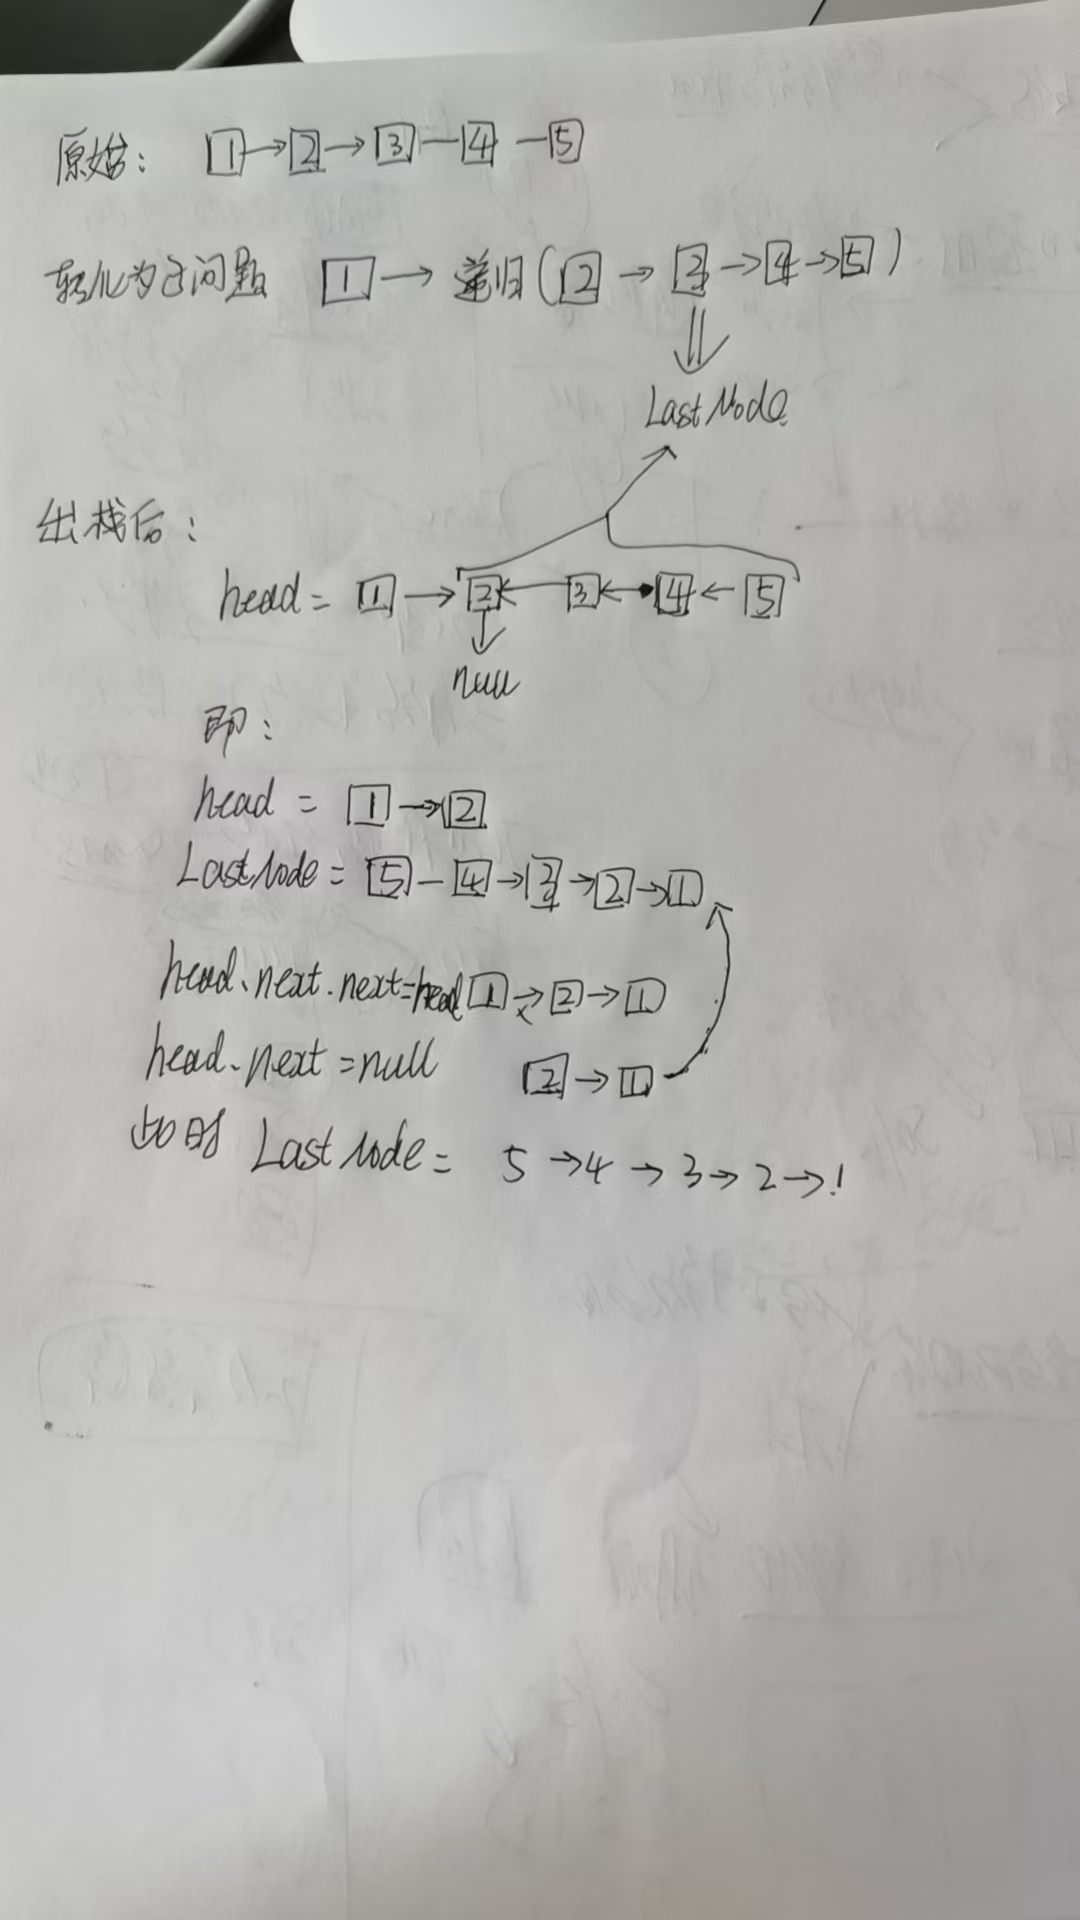 原始： 1→2→3—4—5
转化为子问题 1→递归(2→3→4→5)
⇓
LastNode
出栈后：
head = 1→2←3←4←5
↓
null
即：
head = 1→2
LastNode = 5—4→3→2→1
head.next.next=head 1→2→1
head.next=null 2→1
此时 LastNode = 5→4→3→2→1